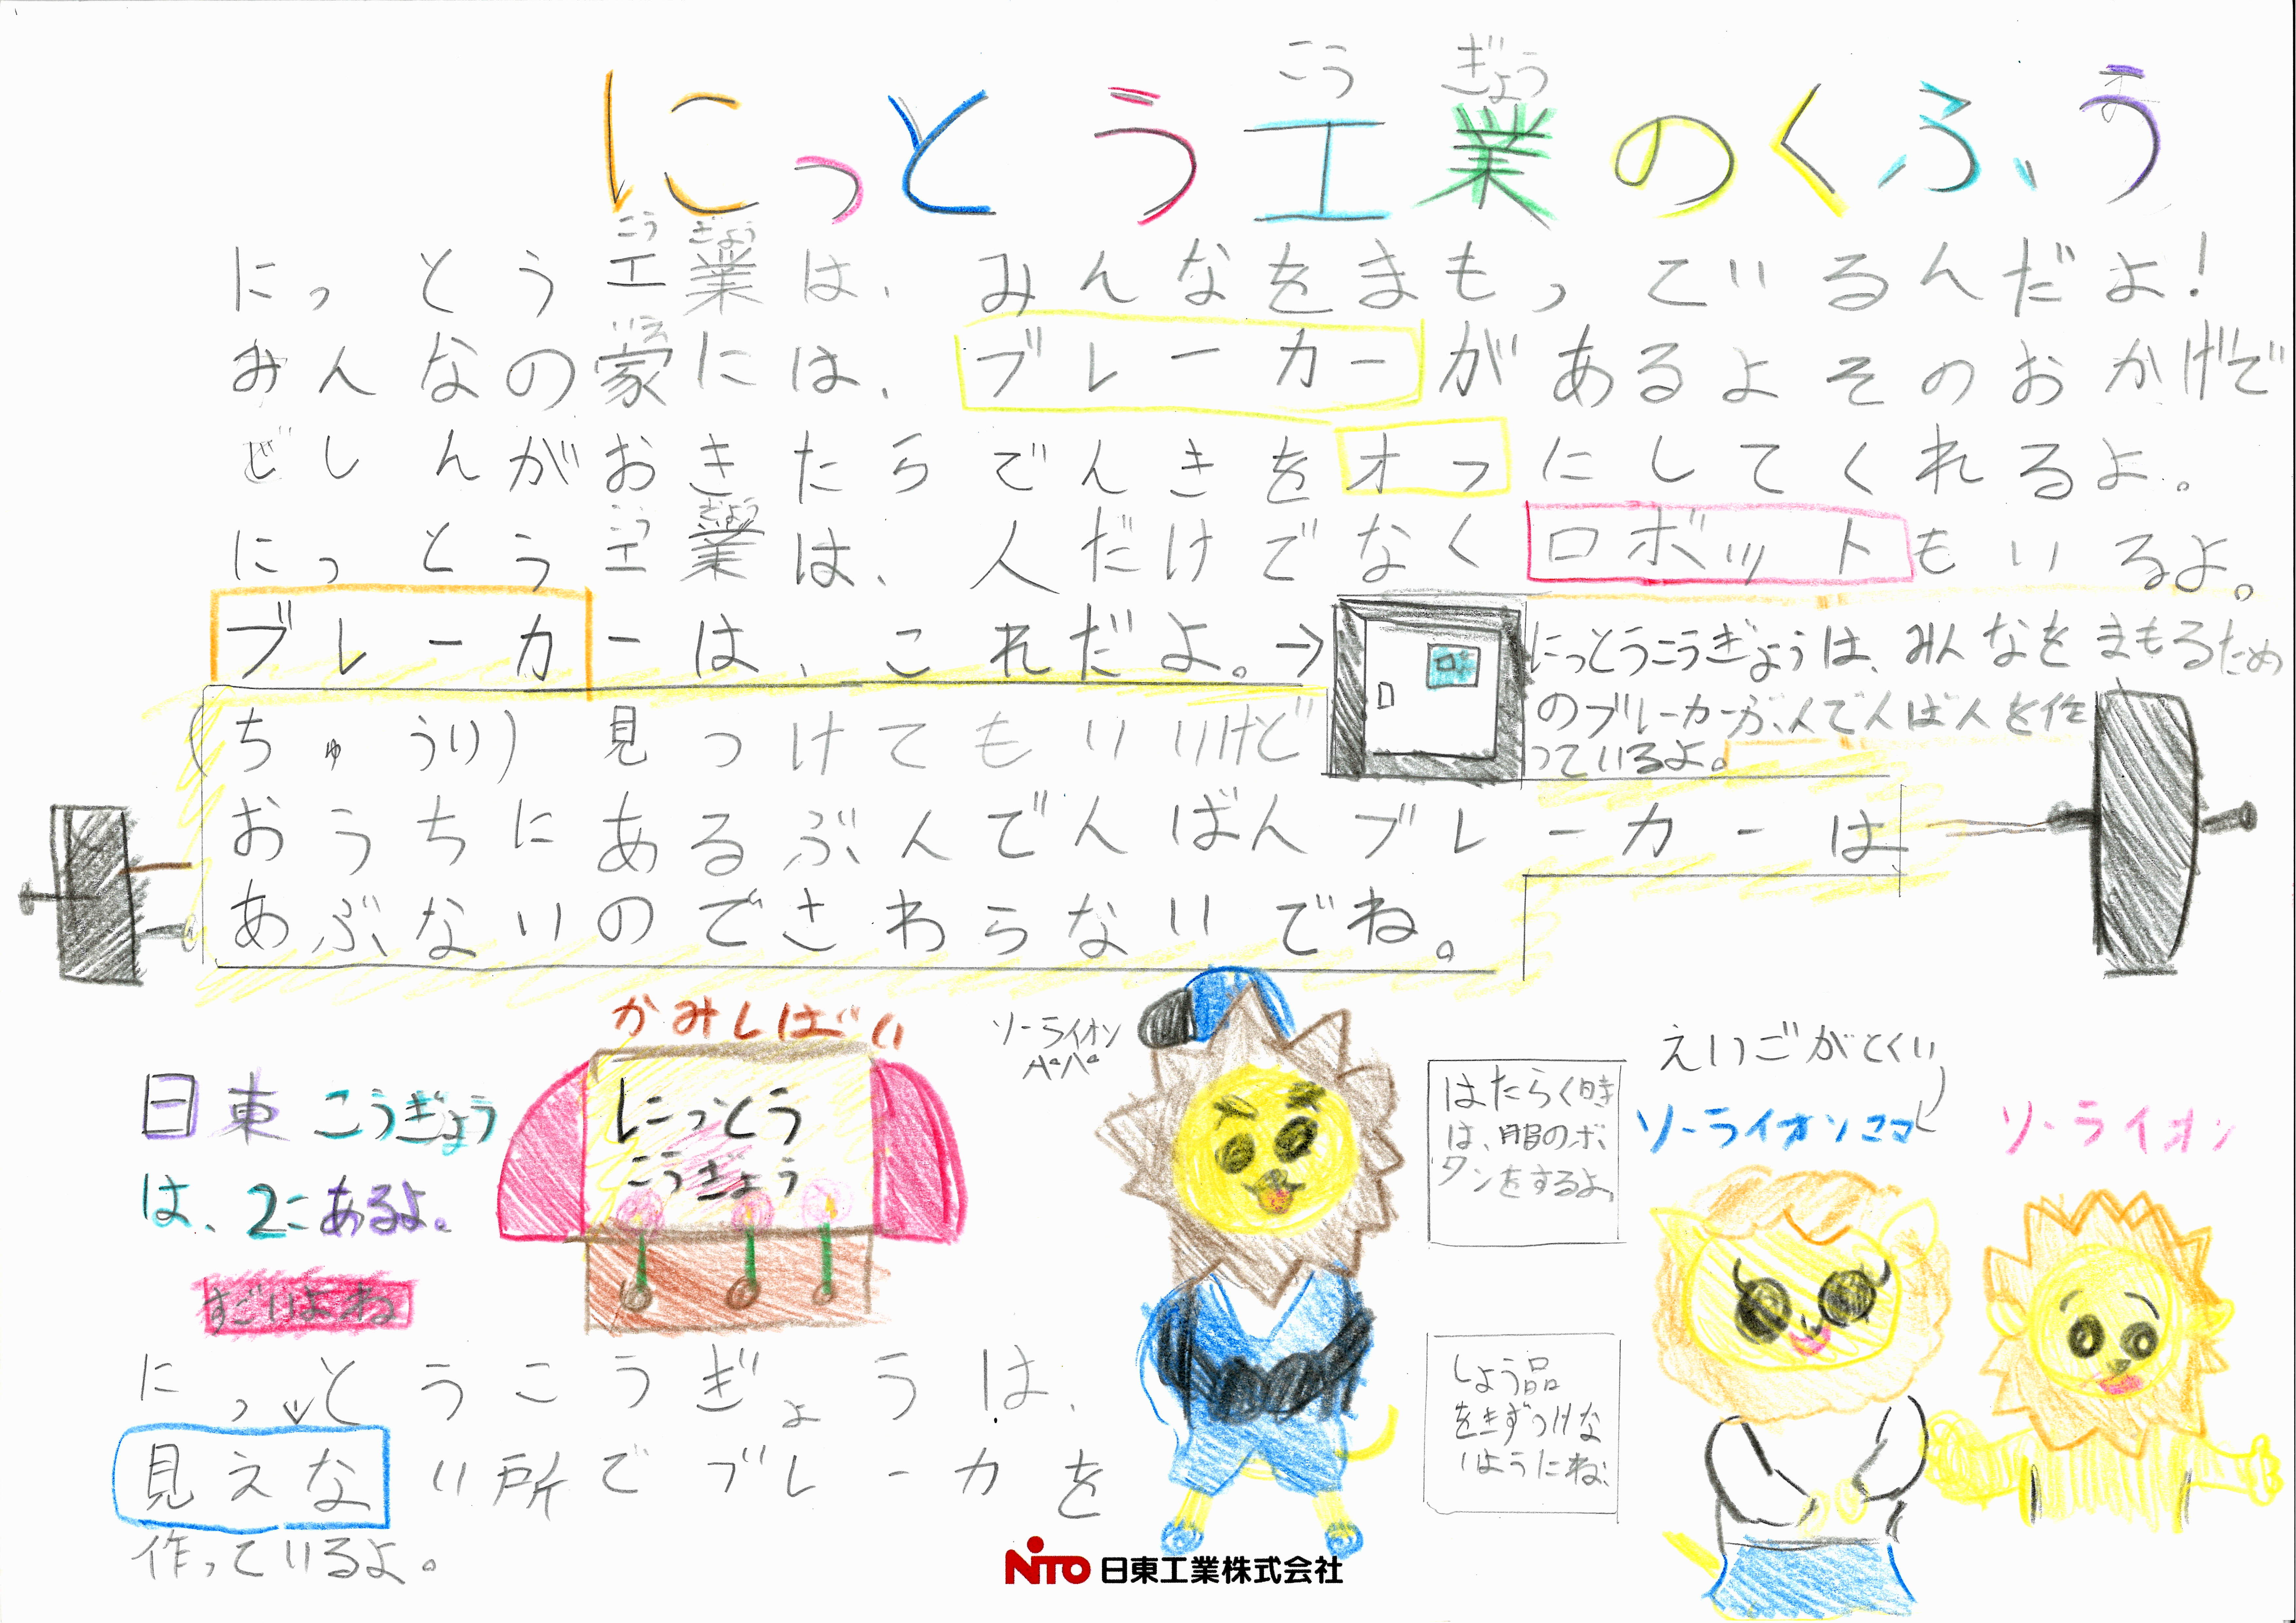 にっとう工業のくふう
こう ぎょう
にっとう工業は、みんなをまもっているんだよ!
こう ぎょう
みんなの家には、ブレーカーがあるよそのおかげで
いえ
じしんがおきたらでんきをオフにしてくれるよ。
にっとう工業は、人だけでなくロボットもいるよ。
こう ぎょう
ブレーカーは、これだよ。→
にっとうこうぎょうは、みんなをまもるため
のブレーカーがぶんでんばんを作
っているよ。
(ちゅうい)見つけてもいいけど
おうちにあるぶんでんばんブレーカーは
あぶないのでさわらないでね。
日東こうぎょう
は、2こあるよ。
すごいよね
かみしばい
にっとう
こうぎょう
ソーライオン
パパ
はたらく時
は、服のボ
タンをするよ。
しょう品
をきずつけな
いようにね。
えいごがとくい
ソーライオンママ
ソーライオン
にっとうこうぎょうは、
見えない所でブレーカを
作っているよ。
NITO 日東工業株式会社